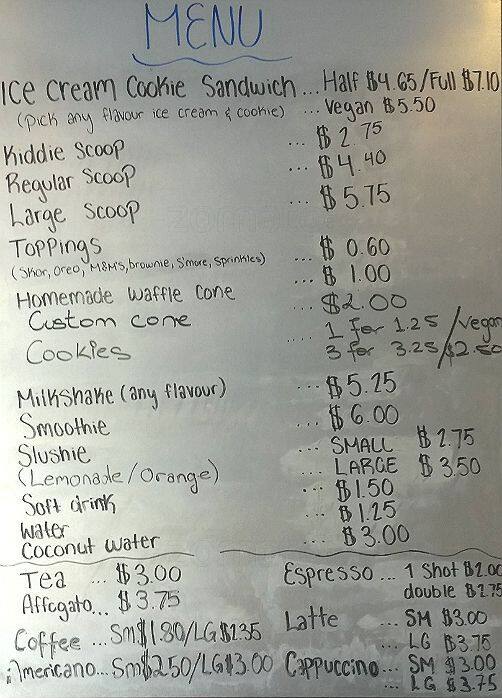 MENU
Ice cream Cookie Sandwich ... Half $4.65/Full $7.10
(pick any flavour ice cream & cookie) ... Vegan $5.50
Kiddie Scoop ... $2.75
Regular Scoop ... $4.40
Large Scoop ... $5.75
Toppings ... $0.60
(Skor, Oreo, M&M's, brownie, S'more, Sprinkles)
Homemade Waffle Cone ... $1.00
Custom cone ... $2.00
Cookies .... 1 for 1.25 / Vegan
3 for 3.25 / $2.50
Milkshake (any flavour) ... $5.25
Smoothie ... $6.00
Slushie ... SMALL $2.75
(Lemonade/Orange) ... LARGE $3.50
Soft drink ... $1.50
Water ... $1.25
Coconut water ... $3.00
Tea ... $3.00
Affogato... $3.75
Coffee ... Sm$1.80/LG$2.35
Americano... Sm$2.50/LG$3.00
Espresso ... 1 Shot $2.00
double $2.75
Latte ... SM $3.00
... LG $3.75
Cappuccino... SM $3.00
... LG $3.75